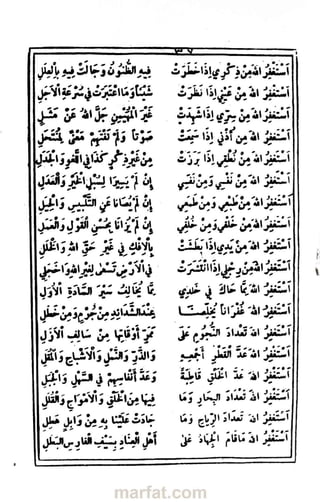 ٣٧
اَسْتَغْفِرُ اللهَ مِنْ ذِكْرِي إِذَا خَطَرَتْ فِيهِ الظُّنُونُ وَجَالَتْ فِيهِ بِالْعِلَلِ
اَسْتَغْفِرُ اللهَ مِنْ عَيْنِي إِذَا نَظَرَتْ شَيْئًا وَمَا اعْتَبَرَتْ فِي سُرْعَةِ الْاَجَلِ
اَسْتَغْفِرُ اللهَ مِنْ سِرِّي إِذَا شَهِدَتْ غَيْرَ الْمُهَيْمِنِ جَلَّ اللهُ عَنْ مَثَلِ
اَسْتَغْفِرُ اللهَ مِنْ أُذُنِي إِذَا سَمِعَتْ صَوْتًا وَلَمْ تَفْتَهِمْ مَعْنًى
اَسْتَغْفِرُ اللهَ مِنْ نُطْقِي إِذَا بَرَزَتْ مِنْ غَيْرِ ذِكْرٍ كَذَا فِي اللَّغْوِ وَالْجَدَلِ
اَسْتَغْفِرُ اللهَ مِنْ نَفْسِي وَمِنْ نَفَسِي إِنْ لَمْ يَسِيرَا لِسُبْلِ الْخَيْرِ وَالْعَدَلِ
اَسْتَغْفِرُ اللهَ مِنْ طَبْعِي وَمِنْ طَمَعِي إِنْ لَمْ يُصَانَا عَنِ التَّلْبِيسِ وَالْحِيَلِ
اَسْتَغْفِرُ اللهَ مِنْ خَلْقِي وَمِنْ خُلُقِي إِنْ لَمْ يُزَانَا بِحُسْنِ الْقَوْلِ وَالْعَمَلِ
اَسْتَغْفِرُ اللهَ مِنْ يَدِي إِذَا بَطَشَتْ بِالْاِفْكِ فِي غَيْرِ حَقِّ اللهِ وَالْخَلَلِ
اَسْتَغْفِرُ اللهَ مِنْ رِجْلِي إِذَا انْتَشَرَتْ فِي الْاَرْضِ تَسْعٰى لِغَيْرِ اللهِ
اَسْتَغْفِرُ اللهَ مِمَّا حَاكَ فِي خَلَدِي مِمَّا يُخَالِفُ سَيْرَ السَّادَةِ الْاُوَلِ
اَسْتَغْفِرُ اللهَ غُفْرَانًا يُخَلِّصُنَا عِنْدَ الشَّدَائِدِ مِنْ جُرْمٍ وَمِنْ خَطَلِ
اَسْتَغْفِرُ اللهَ تَعْدَادَ النُّجُومِ عَلٰى مَرِّ اَوْقَاتِهَا مِنْ سَالِفِ الْاَزَلِ
اَسْتَغْفِرُ اللهَ عَدَّ الْقَطْرِ اَجْمَعِهِ وَالذَّرِّ وَالنَّمْلِ وَالْاَشْبَاحِ وَالْمُقَلِ
اَسْتَغْفِرُ اللهَ عَدَّ الْخَلْقِ قَاطِبَةً وَعَدَّ اَنْفَاسِهِمْ فِي السَّهْلِ وَالْجَبَلِ
اَسْتَغْفِرُ اللهَ تَعْدَادَ الْبِحَارِ وَمَا فِيهَا مِنَ الْخَلْقِ وَالْاَمْوَاجِ وَالْقُلَلِ
اَسْتَغْفِرُ اللهَ تَعْدَادَ الرِّيَاحِ وَمَا جَادَتْ عَلَيْنَا بِهِ مِنْ وَابِلٍ هَطِلِ
اَسْتَغْفِرُ اللهَ مَا قَامَ الْجِهَادُ عَلٰى اَهْلِ الْعِنَادِ بِسَيْفِ الْفَارِسِ الْبَطَلِ
marfat.com